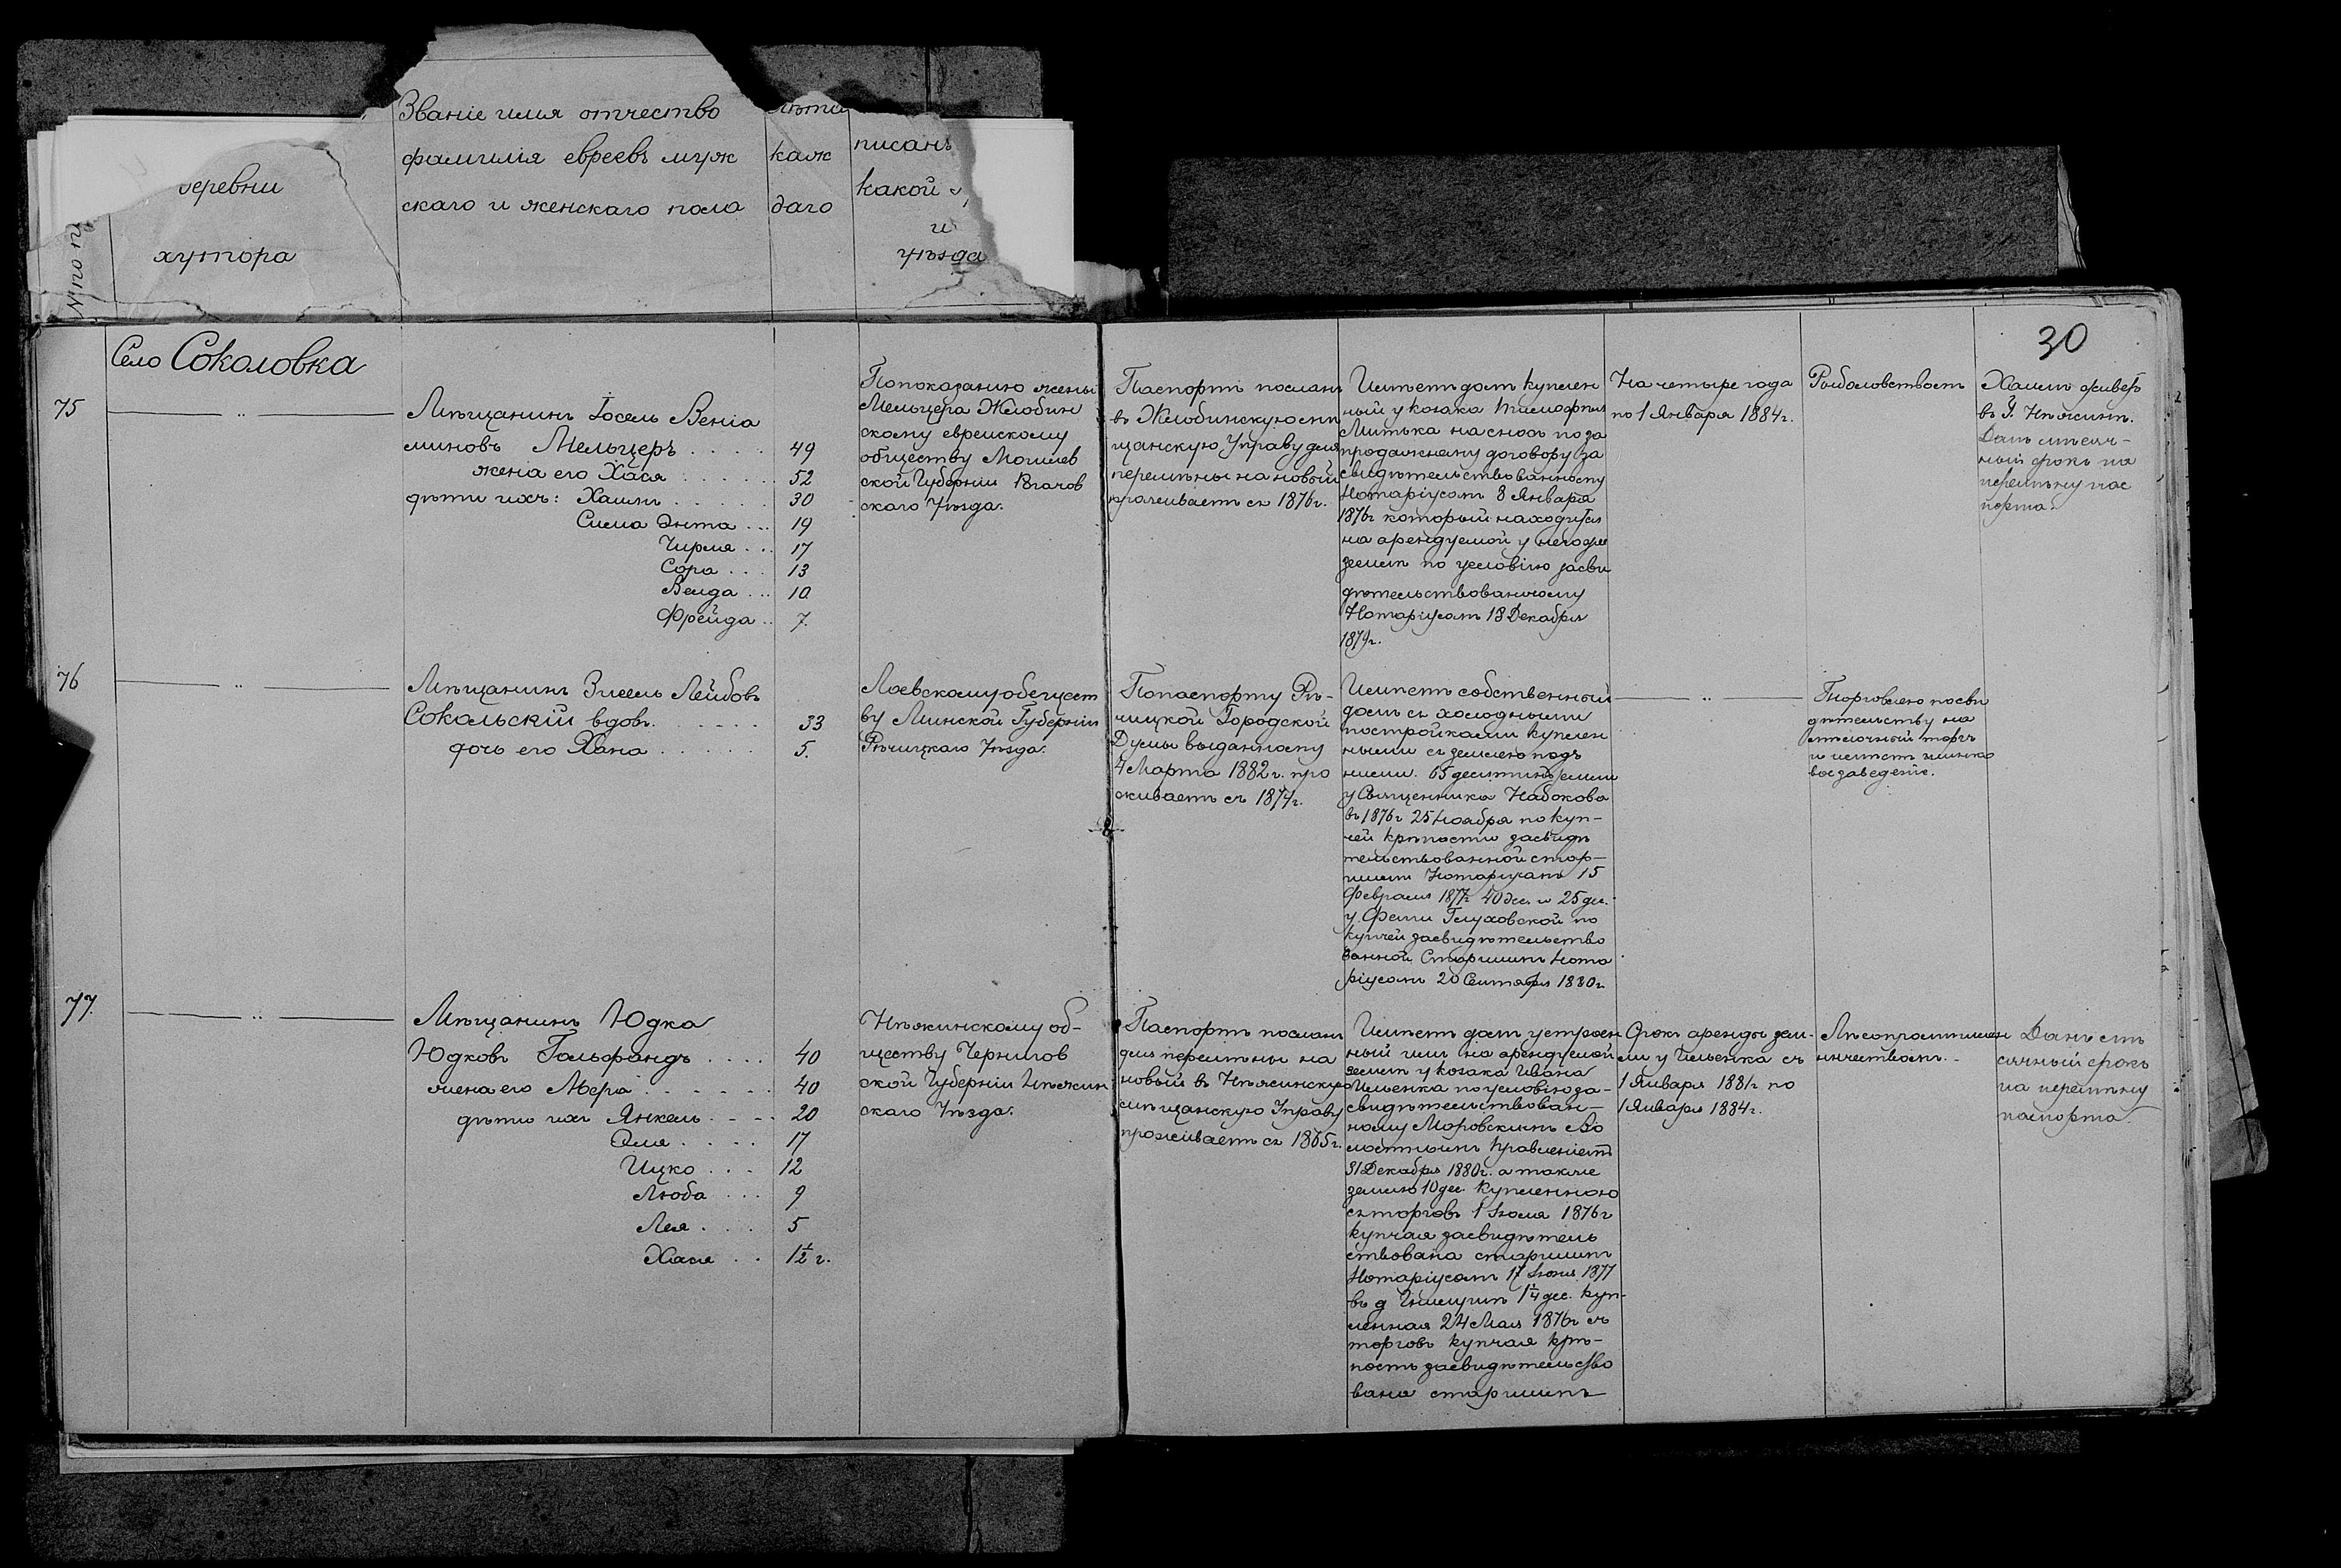 Званіе имя отчество
фамилія евреевъ муж
скаго и женскаго пола
лѣта
каж
даго
писанъ
какой
и
уѣзда
деревни
хутора
№ по
30
Село Соколовка
75
Мѣщанинъ Іосель Веніа
миновъ Мельцеръ . . . . 49
жена его Хася . . . . . . 52
дѣти ихъ: Хаимъ . . . . . 30
Сима Энта . . . 19
Чирля . . . 17
Сора . . . 13
Велда . . . 10
Фрейда . . 7.
По показанію жены
Мельцера Жлобин
скому еврейскому
обществу Могилев
ской Губерніи Рогачов
скаго Уѣзда.
Паспортъ посланъ
въ Жлобинскую мѣ
щанскую Управу для
перемѣны на новый
проживаетъ съ 1876г.
Имѣетъ домъ куплен
ный у козака Тимофтия
Митька на сносъ по за
продажному договору за
свидѣтельствованному
Нотаріусомъ 8 Января
1876г который находится
на арендуемой у него же
землѣ по условію засви
дѣтельствованному
Нотаріусомъ 18 Декабря
1879г.
На четыре года
по 1 Января 1884г.
Рыболовствомъ
Хаимъ живетъ
въ г. Нѣжинѣ.
Данъ мѣсяч-
ный срокъ на
перемѣну пас
порта.
76
Мѣщанинъ Змеель Лейбовъ
Сокольскій вдовъ . . . . . . 33
дочь его Хана . . . . . . 5.
Лоевскому общест
ву Минской Губерніи
Рѣчицкаго Уѣзда.
По паспорту Рѣ-
чицкой Городской
Думы выданному
4 Марта 1882г. про
живаетъ съ 1874г.
Имѣетъ собственный
домъ съ холодными
постройками куплен
ными съ землею подъ
ними. 65 десятинъ земли
у Священника Набокова
въ 1876г 25 Ноября по куп-
чей крѣпости засвидѣ
тельствованной стар-
шимъ Нотаріусомъ 15
Февраля 1877г 40 дес. и 25 дес.
у Фени Глуховской по
купчей засвидѣтельство
ванной Старшимъ Нота
ріусомъ 20 Сентября 1880г.
Торговлею по сви
дѣтельству на
мелочный торгъ
и имѣетъ шинко
вое заведеніе.
77
Мѣщанинъ Юдка
Юдковъ Гольфандъ . . . . 40
жена его Мера . . . . . . 40
дѣти ихъ Янкель . . . . 20
Эля . . . . 17
Ицко . . . 12
Люба . . . 9
Лея . . . . 5
Хася . . 1½ г.
Нѣжинскому об-
ществу Чернигов
ской Губерніи Нѣжин
скаго Уѣзда.
Паспортъ посланъ
для перемѣны на
новый въ Нѣжинскую
мѣщанскую Управу
проживаетъ съ 1865г.
Имѣетъ домъ устроен
ный имъ на арендуемой
землѣ у козака Ивана
Ильенка по условію за-
свидѣтельствован-
ному Моровскимъ Во
лостнымъ Правленіемъ
31 Декабря 1880г. а также
землю 10 дес. купленною
съ торговъ 1 Іюля 1876г
купчая засвидѣтель
ствована старшимъ
Нотаріусомъ 17 Іюня 1877
въ д 1¼ дес. куп-
ленная 24 Мая 1876г съ
торговъ купчая крѣ-
пость засвидѣтельство
вана старшимъ
Срокъ аренды зем-
ли у Ильенка съ
1 Января 1881г по
1 Января 1884г.
Лѣсопромышлен
ничествомъ.
Данъ мѣ
сячный срокъ
на перемѣну
паспорта.